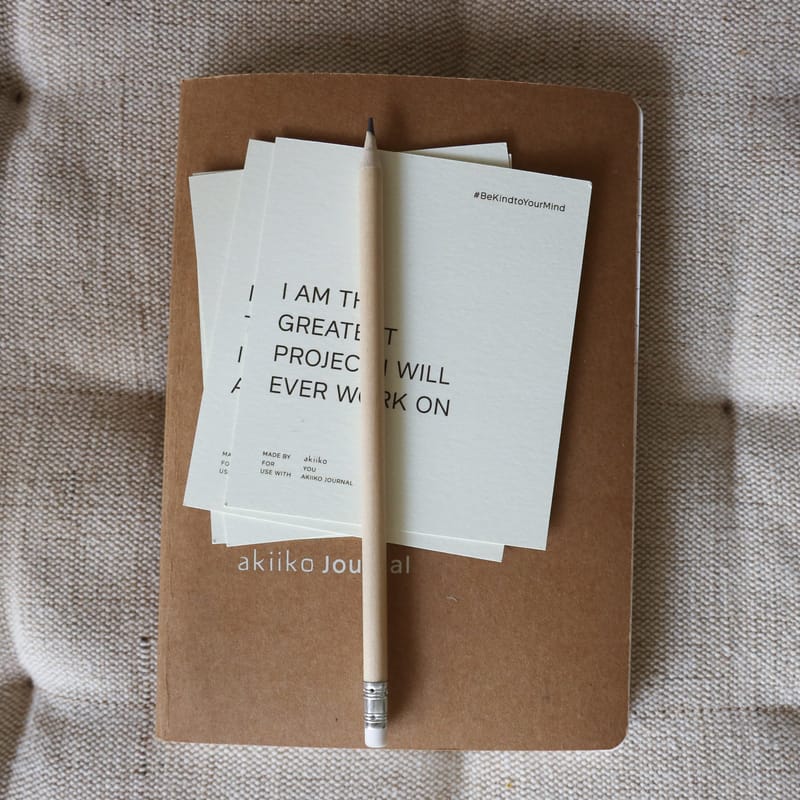 #BeKindtoYourMind
I AM THE
GREATEST
PROJECT I WILL
EVER WORK ON
MADE BY akiiko
FOR YOU
USE WITH AKIIKO JOURNAL
akiiko Journal